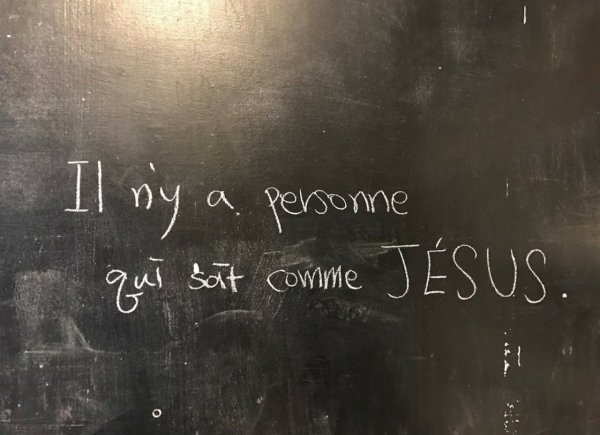 Il n'y a personne
qui soit comme JÉSUS.